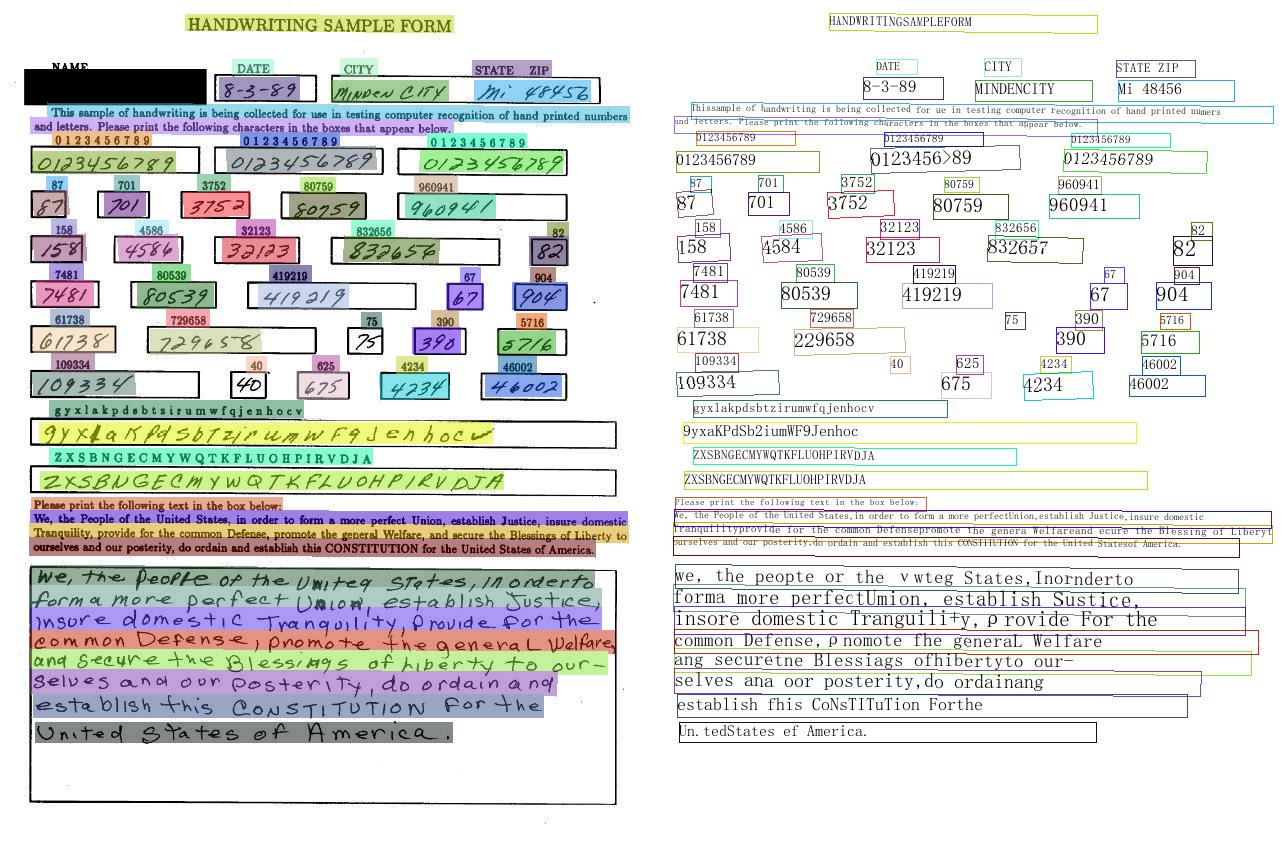 HANDWRITING SAMPLE FORM
NAME DATE CITY STATE ZIP
8-3-89 MINDEN CITY Mi 48456
This sample of handwriting is being collected for use in testing computer recognition of hand printed numbers
and letters. Please print the following characters in the boxes that appear below.
0123456789 0123456789 0123456789
0123456789 0123456789 0123456789
87 701 3752 80759 960941
87 701 3752 80759 960941
158 4586 32123 832656 82
158 4586 32123 832656 82
7481 80539 419219 67 904
7481 80539 419219 67 904
61738 729658 75 390 5716
61738 729658 75 390 5716
109334 40 625 4234 46002
109334 40 675 4234 46002
gyxlakpdsbtzirumwfqjenhocv
gyxlaKpdSbTzirumWFqJenhocv
ZXSBNGECMYWQTKFLUOHPIRVDJA
ZXSBNGECMYWQTKFLUOHPIRVDJA
Please print the following text in the box below:
We, the People of the United States, in order to form a more perfect Union, establish Justice, insure domestic
Tranquility, provide for the common Defense, promote the general Welfare, and secure the Blessings of Liberty to
ourselves and our posterity, do ordain and establish this CONSTITUTION for the United States of America.
We, the People of the United States, in order to
form a more perfect Union, establish Justice,
insure domestic Tranquility, Provide for the
common Defense, promote the general Welfare,
and secure the Blessings of Liberty to our-
selves and our Posterity, do ordain and
establish this CONSTITUTION for the
United States of America.
HANDWRITINGSAMPLEFORM
DATE CITY STATE ZIP
8-3-89 MINDENCITY Mi 48456
Thissample of handwriting is being collected for ue in testing computer recognition of hand printed numers
and letters. Please print the following characters in the boxes that appear below.
0123456789 0123456789 0123456789
0123456789 0123456>89 0123456789
87 701 3752 80759 960941
87 701 3752 80759 960941
158 4586 32123 832656 82
158 4584 32123 832657 82
7481 80539 419219 67 904
7481 80539 419219 67 904
61738 729658 75 390 5716
61738 229658 390 5716
109334 40 625 4234 46002
109334 675 4234 46002
gyxlakpdsbtzirumwfqjenhocv
9yxaKPdSb2iumWF9Jenhoc
ZXSBNGECMYWQTKFLUOHPIRVDJA
ZXSBNGECMYWQTKFLUOHPIRVDJA
Please print the following text in the box below:
We, the People of the United States,in order to form a more perfectUnion,establish Justice,insure domestic
Tranquilityprovide for the common Defensepromote the genera Welfareand ecure the Blessing of Liberyt
ourselves and our posterity.do ordain and establish this CONSTITUTION for the United Statesof America.
we, the peopte or the vwteg States,Inornderto
forma more perfectUmion, establish Sustice,
insure domestic Tranquility, provide For the
common Defense, pnomote fhe generaL Welfare
ang securetne Blessiags ofhibertyto our-
selves ana oor posterity,do ordainang
establish fhis CoNsTITuTion Forthe
Un.tedStates ef America.